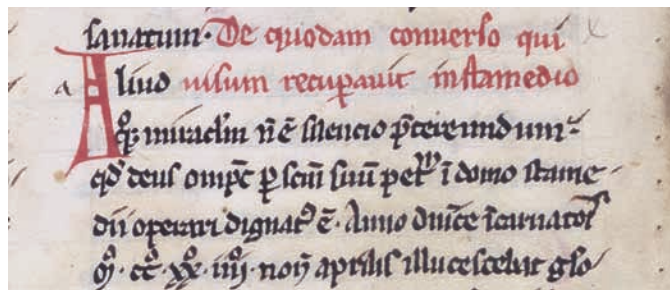 sanatum · De quodam converso qui
Aliud visum recup̄auit in stamedio
qͦꝫ miraclm̄ n̄ ē silencio p̄tereundum ·
qd̄ deus omp̄c ꝑ scm̄ suū petͮ ī domo stame/
dii operari dignatꝰ ē · Anno dn̄ice īcarnatōis
Mͦ · ccͦ · xxͦ · iiijͦ · non̄ aprilis illucescebat glo/